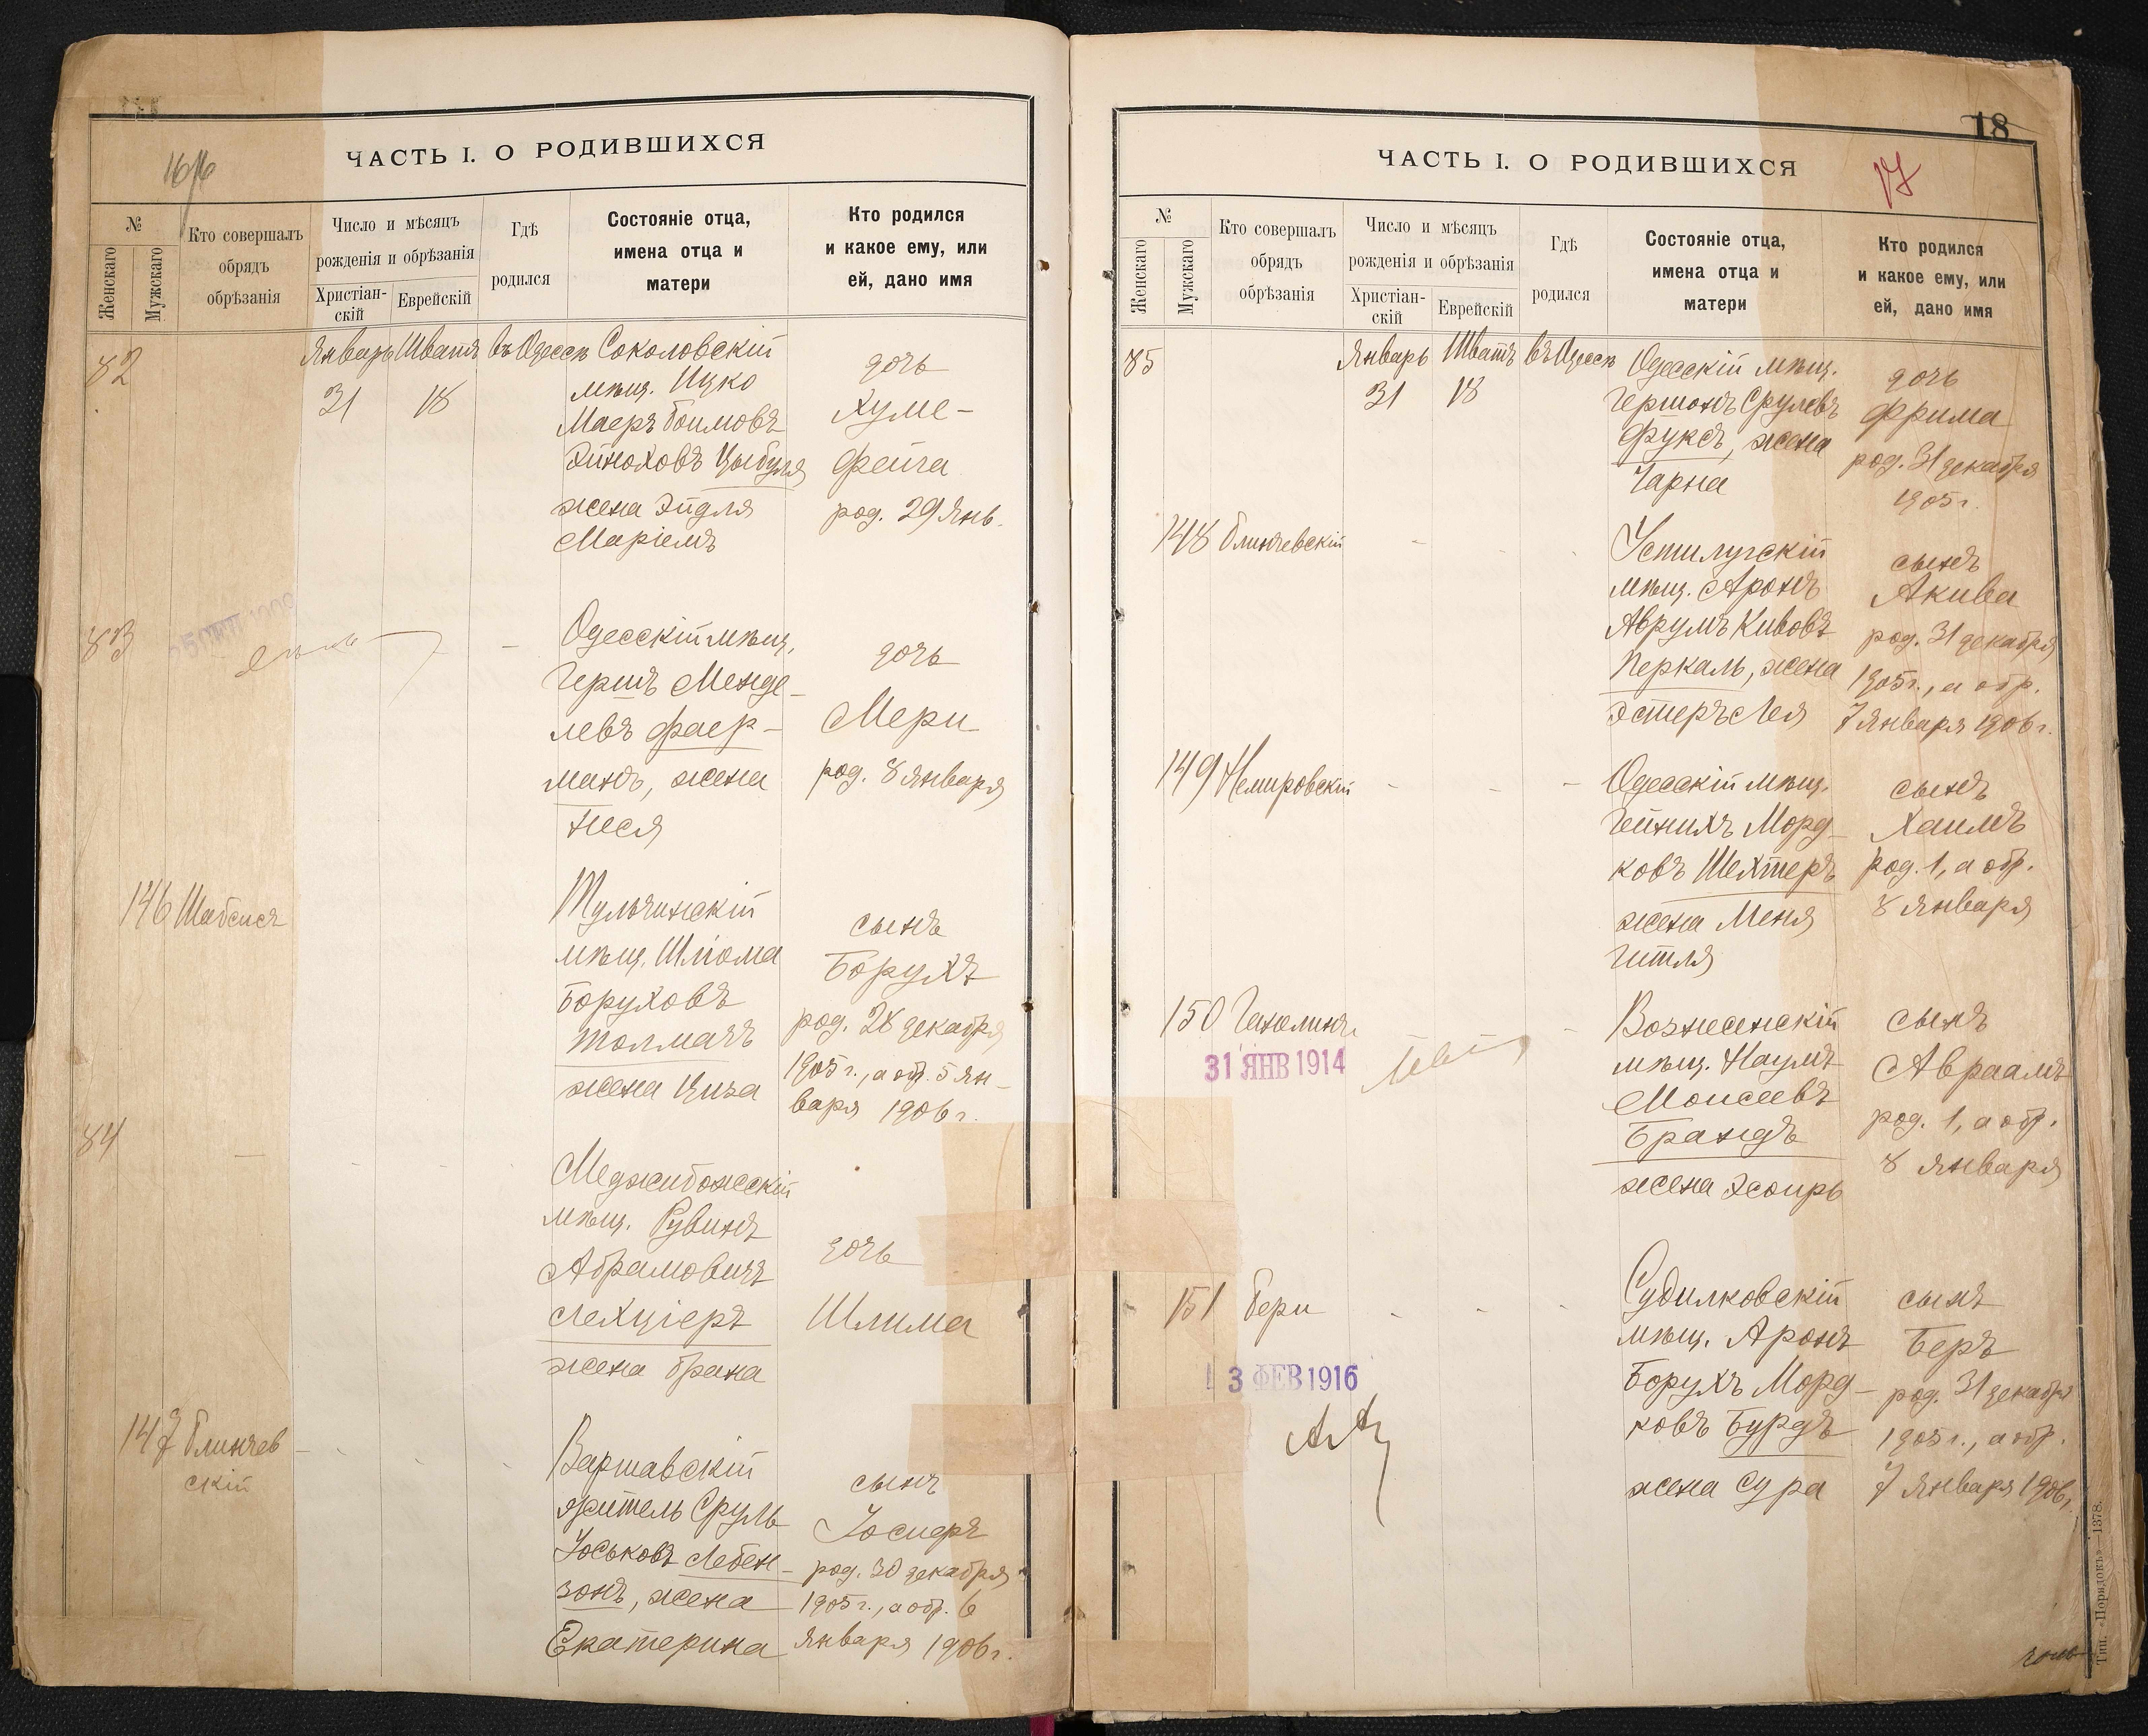 ЧАСТЬ I. О РОДИВШИХСЯ
№
Женскаго
Мужскаго
Кто совершалъ
обрядъ
обрѣзанія
Число и мѣсяцъ
рожденія и обрѣзанія
Христіан-
скій
Еврейскій
Гдѣ
родился
Состояніе отца,
имена отца и
матери
Кто родился
и какое ему, или
ей, дано имя
82
Январь Шватъ въ Одессѣ
31 18
Соколовскій
мѣщ. Ицко
Маеръ Боимовъ
Эйноховъ Цыбуля
жена Эйдля
Маріемъ
дочь
Хуме-
Фейга
род. 29 Янв.
83
Одесскій мѣщ.
Гершъ Менде-
левъ Фаер-
манъ, жена
Неся
дочь
Мери
род. 8 Января
146 Шабсисъ
Тульчинскій
мѣщ. Шліома
Боруховъ
Толмачъ
жена Циза
сынъ
Борухъ
род. 28 декабря
1905 г., а обр. 5 Ян-
варя 1906 г.
84
Меджибожскій
мѣщ. Рувинъ
Абрамовичъ
Лехціеръ
жена Брана
дочь
Шлима
147 Блинчев
скій
Варшавскій
житель Сруль
Іоськовъ Лебен-
зонъ, жена
Екатерина
сынъ
Іосифъ
род. 30 декабря
1905 г., а обр. 6
Января 1906 г.
18
ЧАСТЬ I. О РОДИВШИХСЯ
17
№
Женскаго
Мужскаго
Кто совершалъ
обрядъ
обрѣзанія
Число и мѣсяцъ
рожденія и обрѣзанія
Христіан-
скій
Еврейскій
Гдѣ
родился
Состояніе отца,
имена отца и
матери
Кто родился
и какое ему, или
ей, дано имя
85
Январь Шватъ въ Одессѣ
31 18
Одесскій мѣщ.
Гершонъ Срулевъ
Фуксъ, жена
Чарна
дочь
Фрима
род. 31 декабря
1905 г.
148 Блинчевскій
Устилугскій
мѣщ. Аронъ
Аврумъ Кивовъ
Перкаль, жена
Эстеръ Лея
сынъ
Акива
род. 31 декабря
1905 г., а обр.
7 Января 1906 г.
149 Немировскій
Одесскій мѣщ.
Гейнихъ Морд-
ковъ Шехтеръ
жена Меня
Гитля
сынъ
Хаимъ
род. 1, а обр.
8 Января
150
31 ЯНВ 1914
Вознесенскій
мѣщ. Наумъ
Моисеевъ
Брандъ
жена Эсѳирь
сынъ
Авраамъ
род. 1, а обр.
8 Января
151 Бери
3 ФЕВ 1916
Судилковскій
мѣщ. Аронъ
Борухъ Морд-
ковъ Бурдъ
жена Сура
сынъ
Беръ
род. 31 декабря
1905 г., а обр.
7 Января 1906 г.
Тип. «Порядокъ»—1378.